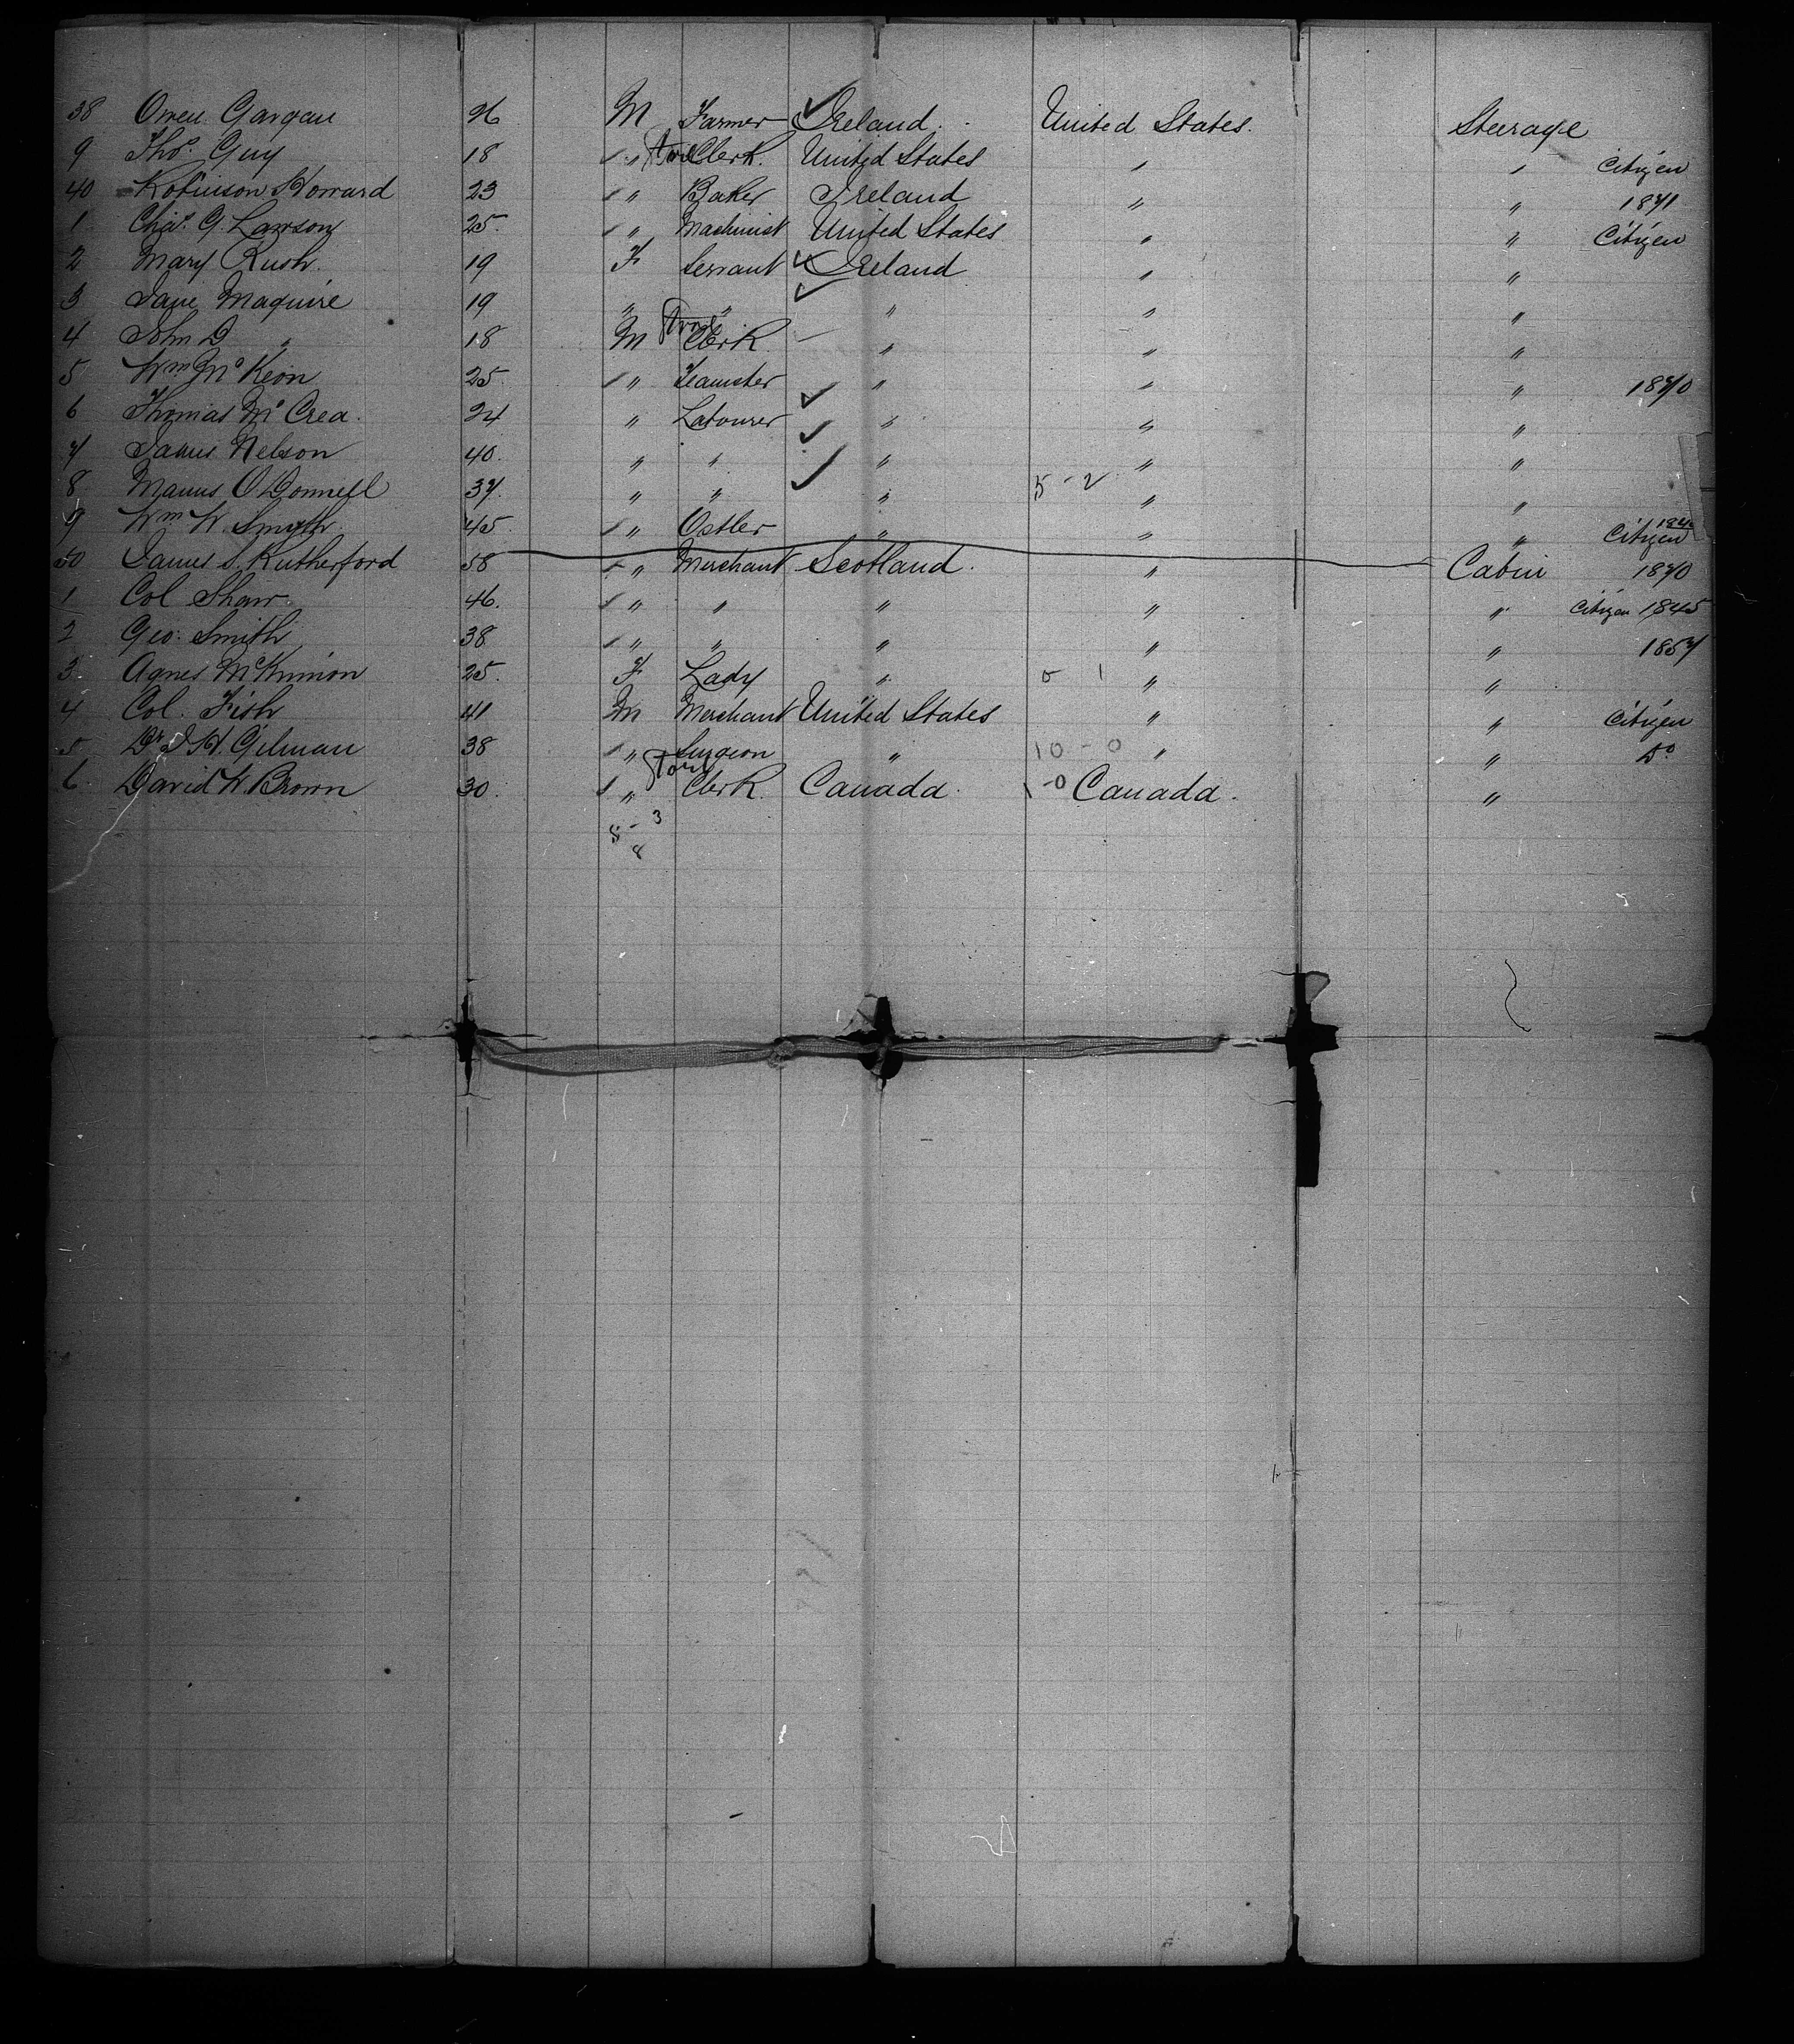 38 Owen Gargan 26 M Farmer ✓ Ireland. United States. Steerage
9 Thos. Guy 18 " Clerk. United States " " Citizen
40 Robinson Howard 23 " Baker Ireland " " 1871
1 Chas. G. Lawson 25. " Machinist United States " " Citizen
2 Mary Rush. 19 F Servant ✓ Ireland " "
3 Jane Maguire 19 " " ✓ " " "
4 John D " 18 M Clerk " " "
5 Wm McKeon 25. " Teamster " " " 1870
6 Thomas McCrea. 24 " Labourer ✓ " " "
7 James Nelson 40. " " ✓ " " "
8 Manus O'Donnell 37. " " ✓ " 5 - 2 " "
9 Wm W. Smyth. 45. " Ostler " " " Citizen
50 James S. Rutherford 58 " Merchant Scotland. " Cabin 1870
1 Col Shaw. 46. " " " " " Citizen 1845
2 Geo: Smith 38 " " " " " 1857
3. Agnes McKinnion 25. F Lady " 0 1 " "
4 Col. Fish 41 M Merchant United States " " Citizen
5 Dr. J. H. Gilman 38 " Surgeon " 10 - 0 " " Do
6 David W. Brown 30. " Clerk. Canada. 1-0 Canada. "
5 - 3
8